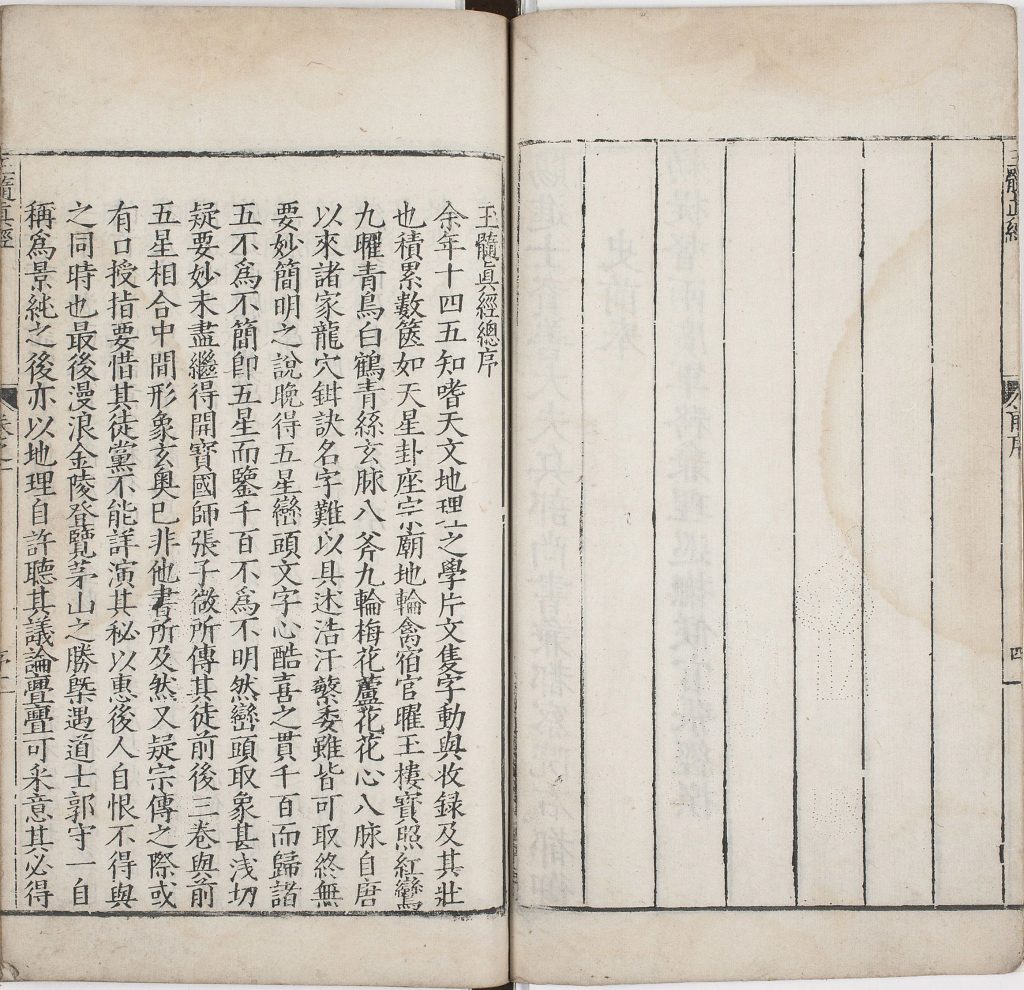 四
玉髓真經總序
余年十四五知嗜天文地理之學片文隻字動與收録及其壯
也積累數篋如天星卦座宗廟地輪禽宿官曜玉樓寶照紅鸞
九曜青鳥白鶴青絲玄脉八斧九輪梅花蘆花花心八脉自唐
以來諸家龍穴鉗訣名字難以具述浩汗繁委雖皆可取終無
要妙簡明之說晚得五星巒頭文字心酷喜之貫千百而歸諸
五不為不簡卽五星而鑒千百不為不明然巒頭取象甚浅切
疑要妙未盡繼得開寶國師張子微所傳其徒前後三卷與前
五星相合中間形象玄奥巳非他書所及然又疑宗傳之際或
有口授指要惜其徒黨不能詳演其秘以惠後人自恨不得與
之同時也最後漫浪金陵登覽茅山之勝槩遇道士郭守一自
稱爲景純之後亦以地理自許聽其議論亹亹可采意其必得